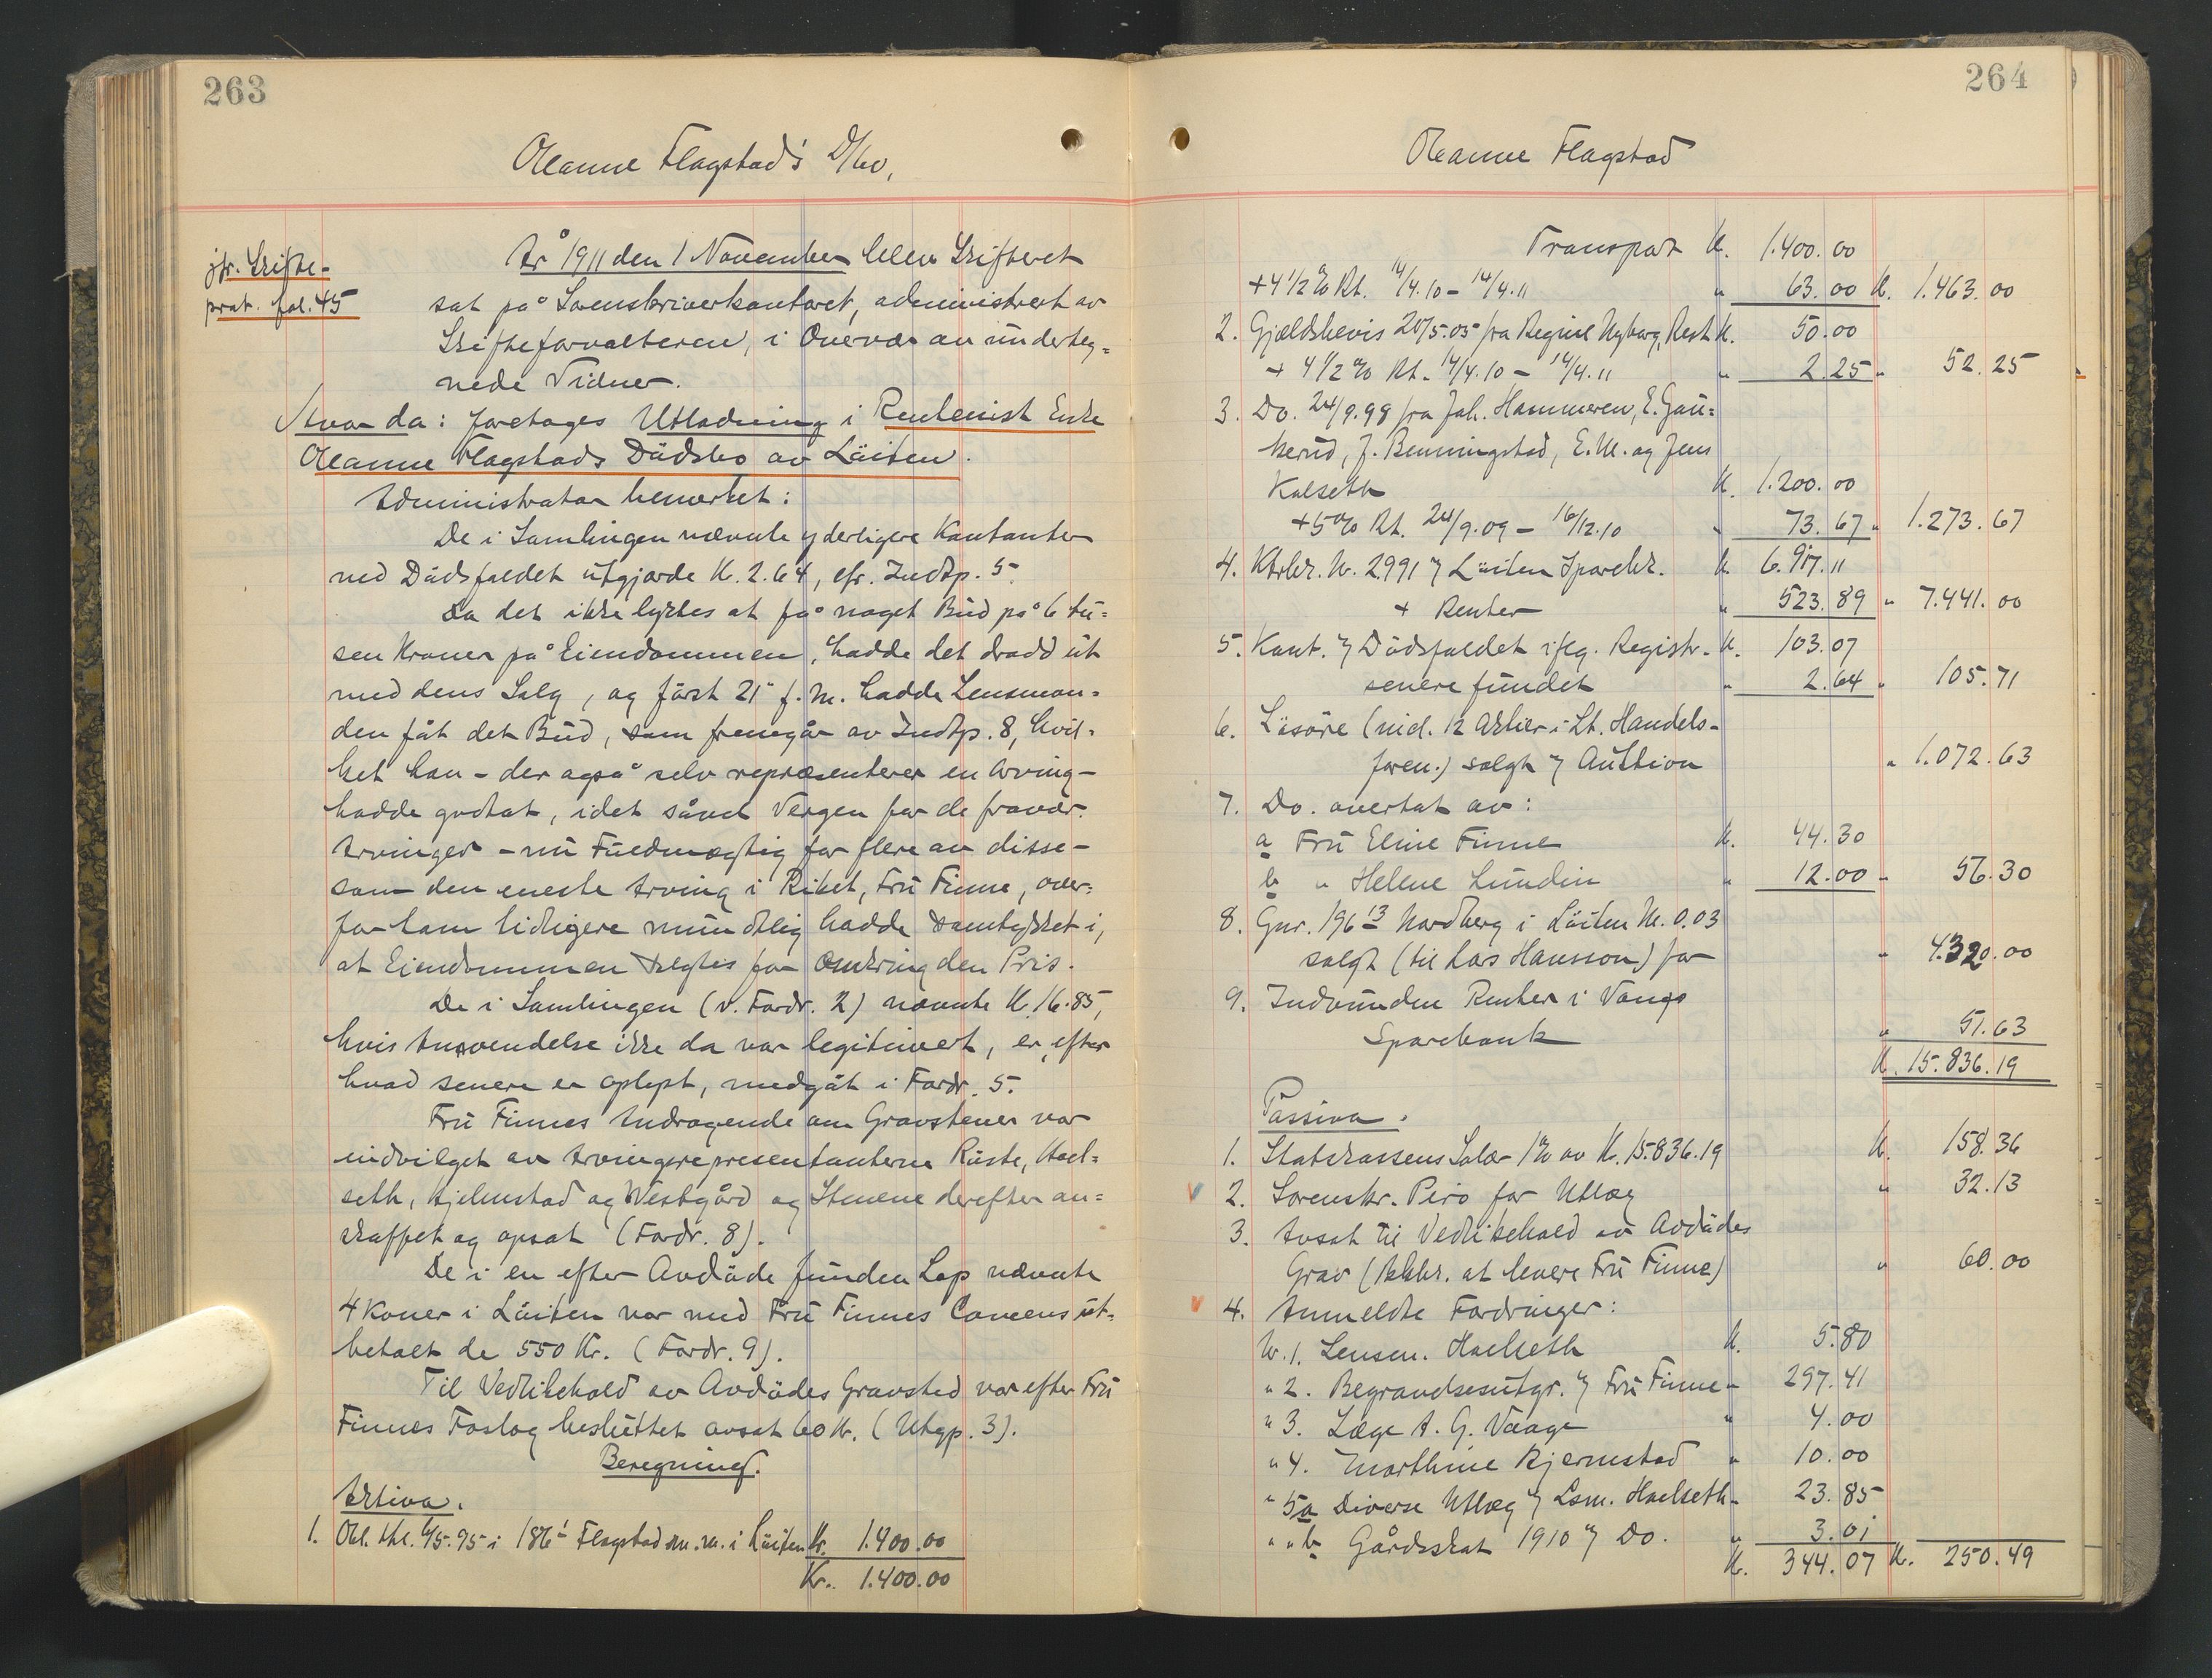 263
Oleanne Flagstad's D/bo,
jfr. Skifte-
prot. fol. 45
År 1911 den 1 November blev Skifteret
sat på Sorenskriverkontoret, administrert av
Skifteforvalteren, i Overvær av underteg=
nede Vidner.
Hvor da: foretages Utlodning i Rentenist Enke
Oleanne Flagstads Dödsbo av Löiten.
Administrator bemerket:
De i Samlingen nævnte yderligere Kontanter
ved Dödsfaldet utgjorde Kr. 2.64, cfr. Indtp. 5.
Da det ikke lyktes at få noget Bud på 6 tu=
sen Kroner på Eiendommen, hadde det dradd ut
med dens Salg, og først 21 f.M. hadde Lensman=
den fåt det Bud, som fremgår av Indtp. 8, hvil=
ket han - der også selv repræsenterer en Arving -
hadde godtat, idet såvel Vergen for de fravær.
Arvinger - nu Fuldmægtig for flere av disse -
som den eneste Arving i Riket, Fru Finne, over=
for ham tidligere mundtlig hadde samtykket i,
at Eiendommen solgtes for omkring den Pris.
De i Samlingen (v. Fordr. 2) nævnte Kr. 16.85,
hvis Anvendelse ikke da var legitimert, er, efter
hvad senere er oplyst, medgåt i Fordr. 5.
Fru Finnes Andragende om Gravstener var
indvilget av Arvingerepresentanterne Ruste, Hoel=
seth, Hjelmstad og Westgård og Stenene derefter an=
skaffet og opsat (Fordr. 8).
De i en efter Avdöde funden Lap nævnte
4 Koner i Löiten var med Fru Finnes Concens ut=
betalt de 550 Kr. (Fordr. 9).
Til Vedlikehold av Avdödes Gravsted var efter Fru
Finnes Forslag besluttet avsat 60 Kr. (Utgp. 3).
Beregning.
Aktiva.
1. Obl. thl. 4/5.95 i 186¹ Flagstad m.m. i Löiten Kr. 1.400.00
Kr. 1.400.00
264
Oleanne Flagstad
Transport Kr. 1.400.00
+ 4 1/2 % Rt. 14/4.10 - 14/4.11 " 63.00 Kr. 1.463.00
2. Gjældsbevis 20/5.05 fra Regine Nyborg, Rest Kr. 50.00
+ 4 1/2 % Rt. 14/4.10 - 14/4.11 " 2.25 " 52.25
3. Do. 24/9.98 fra Joh. Hammeren, E. Gau=
kerud, J. Benningstad, E.M. og Jens
Kolseth Kr. 1.200.00
+ 5% Rt. 24/9.09 - 16/12.10 " 73.67 " 1.273.67
4. Ktrbk. Nr. 2991 i Löiten Sparebk. Kr. 6.917.11
+ Renter " 523.89 " 7.441.00
5. Kont. v/ Dödsfaldet iflg. Registr. Kr. 103.07
senere fundet " 2.64 " 105.71
6. Lösöre (incl. 12 Aktier i Lt. Handels-
foren.) solgt v/ Auktion " 1.072.63
7. Do. overtat av:
a Fru Eline Finne Kr. 44.30
b " Helene Lundin " 12.00 " 56.30
8. Gnr. 196¹³ Nordberg i Löiten M. 0.03
solgt (til Lars Hansson) for " 4.320.00
9. Indvunden Renter i Vangs
Sparebank " 51.63
Kr. 15.836.19
Passiva.
1. Statskassens Salær 1% av Kr. 15.836.19 Kr. 158.36
2. Sorenskr. Piro for Utlæg " 32.13
3. Avsat til Vedlikehold av Avdödes
Grav (Bkbk. at levere Fru Finne) " 60.00
4. Anmeldte Fordringer:
Nr. 1. Lensm. Hoelseth Kr. 5.80
" 2. Begravelsesutgr. v/ Fru Finne - 297.41
" 3. Læge A. G. Vaage " 4.00
" 4. Marthine Bjermstad " 10.00
" 5a Diverse Utlæg v/ Lsm. Hoelseth - 23.85
" " b Gårdsskat 1910 v/ Do. " 3.01
Kr. 344.07 Kr. 250.49